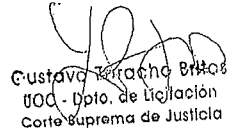 Gustavo Britos
UOC - Dpto. de Licitación
Corte Suprema de Justicia